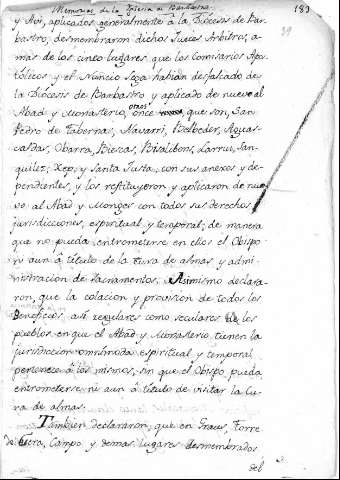 Memorias de la Iglesia de Barbastro.
183
y Aoiz, aplicados generalmente à la Diocesis de Bar-
bastro; desmembraron dichos Jueces Arbitros, a-
más de los cinco lugares que los Comisarios Apos-
tólicos y el Nuncio Sega habian desfalcado de
la Diócesis de Barbastro y aplicado de nuevo al
Abad y Monasterio, otros once que son, San
Pedro de Tabernas, Navarri, Belbeder, Aguas-
caldas, Obarra, Biescas, Bisalibons, Larrui, San-
quilez, Xexo, y Santa Justa, con sus anexos y de-
pendientes, y los restituyeron y aplicaron de nue-
vo al Abad y Monges con todos sus derechos,
jurisdicciones, espiritual y temporal; de manera
que no pueda entrometerse en ellos el Obispo
ni aun à titulo de la Cura de almas y admi-
nistración de Sacramentos. Asimismo declara-
ron, que la colacion y provision de todos los
Beneficios, asi regulares como seculares de los
pueblos en que el Abad y Monasterio, tienen la
jurisdiccion omnimoda espiritual y temporal
pertenece à los mismos, sin que el Obispo pueda
entrometerse ni aun à titulo de visitar la Cu-
ra de almas.
Tambien declararon, que en Graus, Torre
de Esera, Campo y demas lugares desmembrados
del